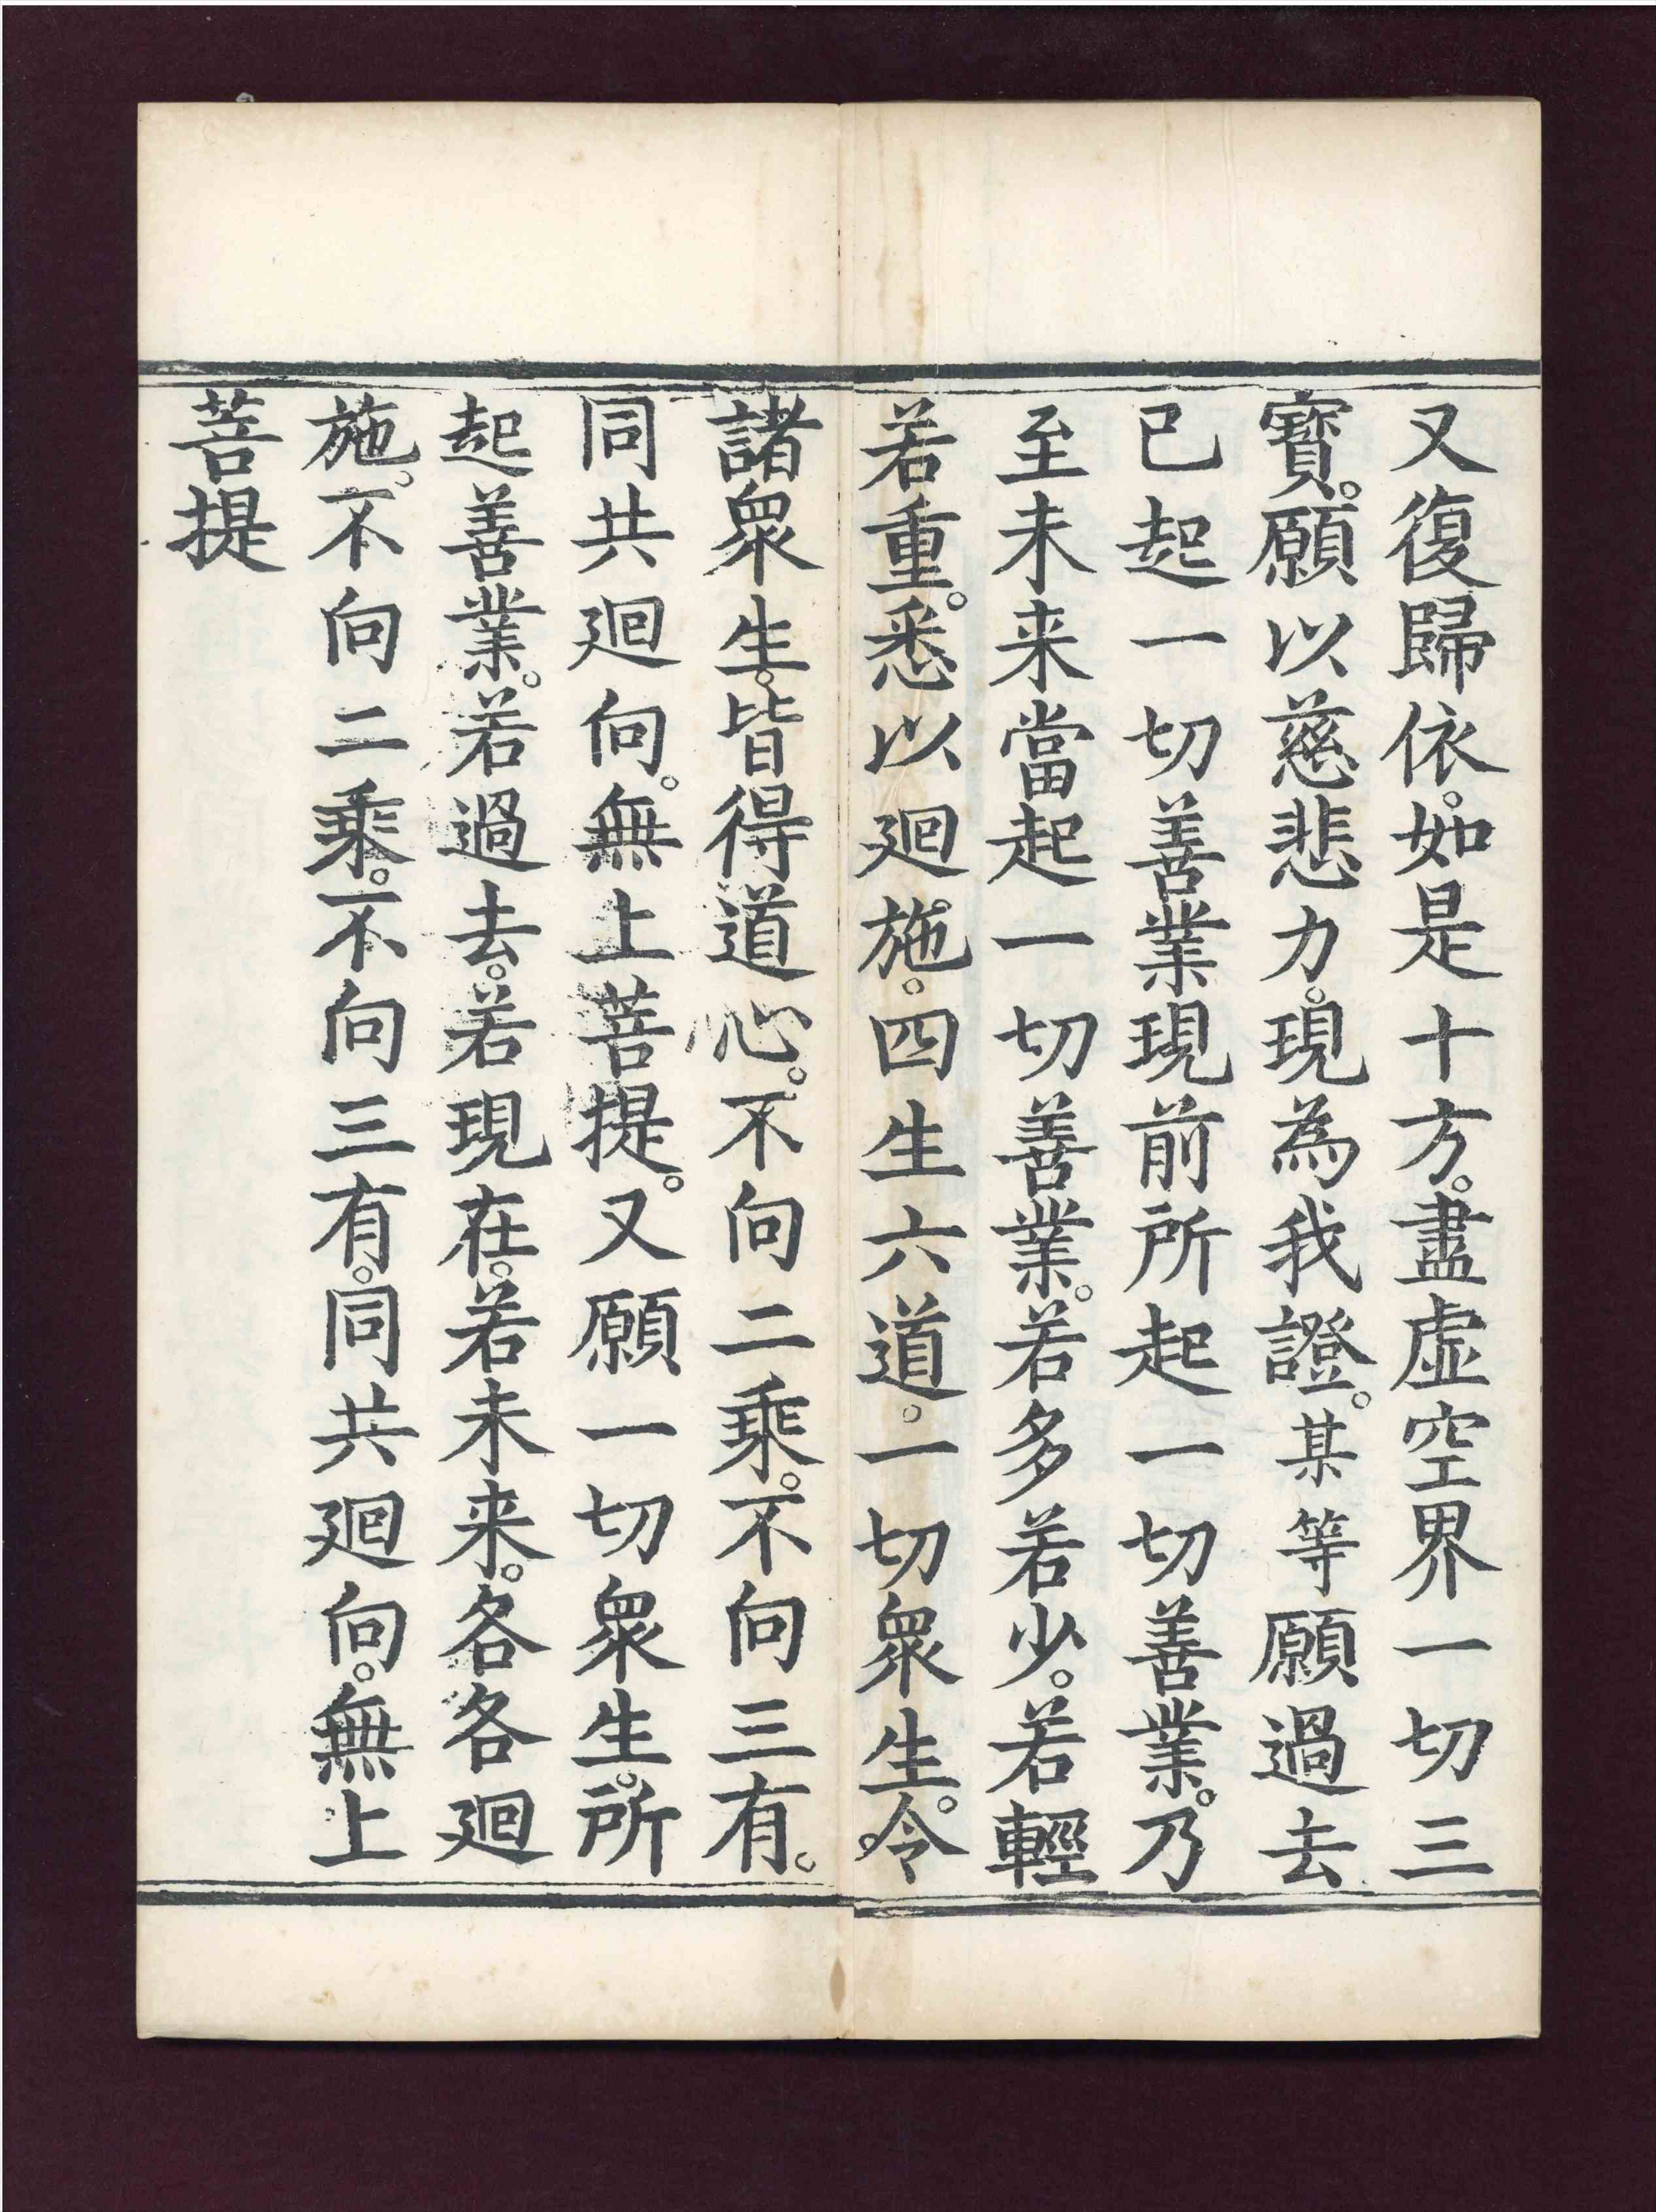 又復歸依。如是十方。盡虛空界一切三
寶。願以慈悲力。現為我證。某等願過去
已起一切善業現前所起一切善業。乃
至未来當起一切善業。若多若少。若輕
若重。悉以廻施。四生六道。一切眾生。令
諸眾生。皆得道心。不向二乘。不向三有。
同共廻向。無上菩提。又願一切眾生。所
起善業。若過去。若現在。若未来。各各廻
施。不向二乘。不向三有。同共廻向。無上
菩提